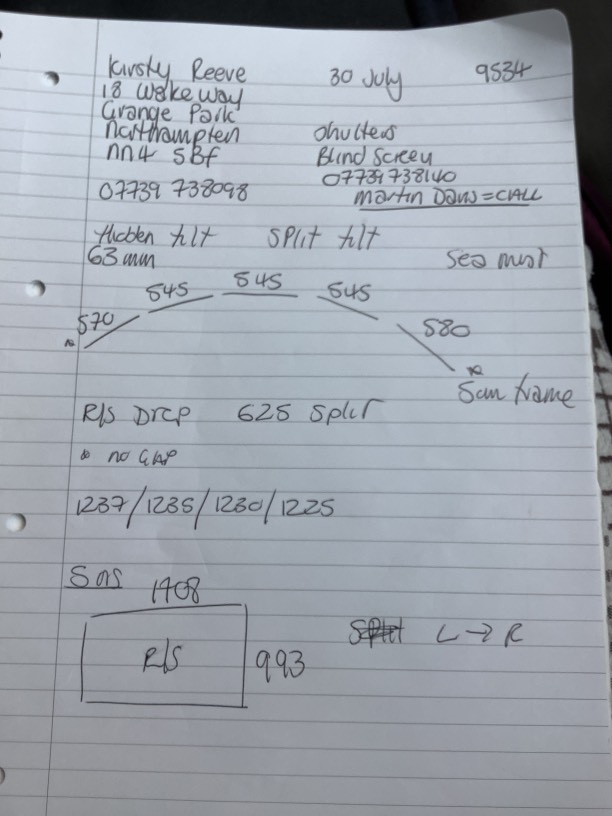 Kirsty Reeve 30 July 9534
18 Wake Way
Grange Park
Northampton Shutters
NN4 5BF Blind Screen
07739 738140
07739 738098 Martin = CALL
Hidden tilt Split tilt
63mm Sea mist
570 545 545 545 580
* *
5cm frame
R/S Drop 625 Split
* no GAP
1237/1235/1230/1225
Sons
1408
R/S 993 L → R